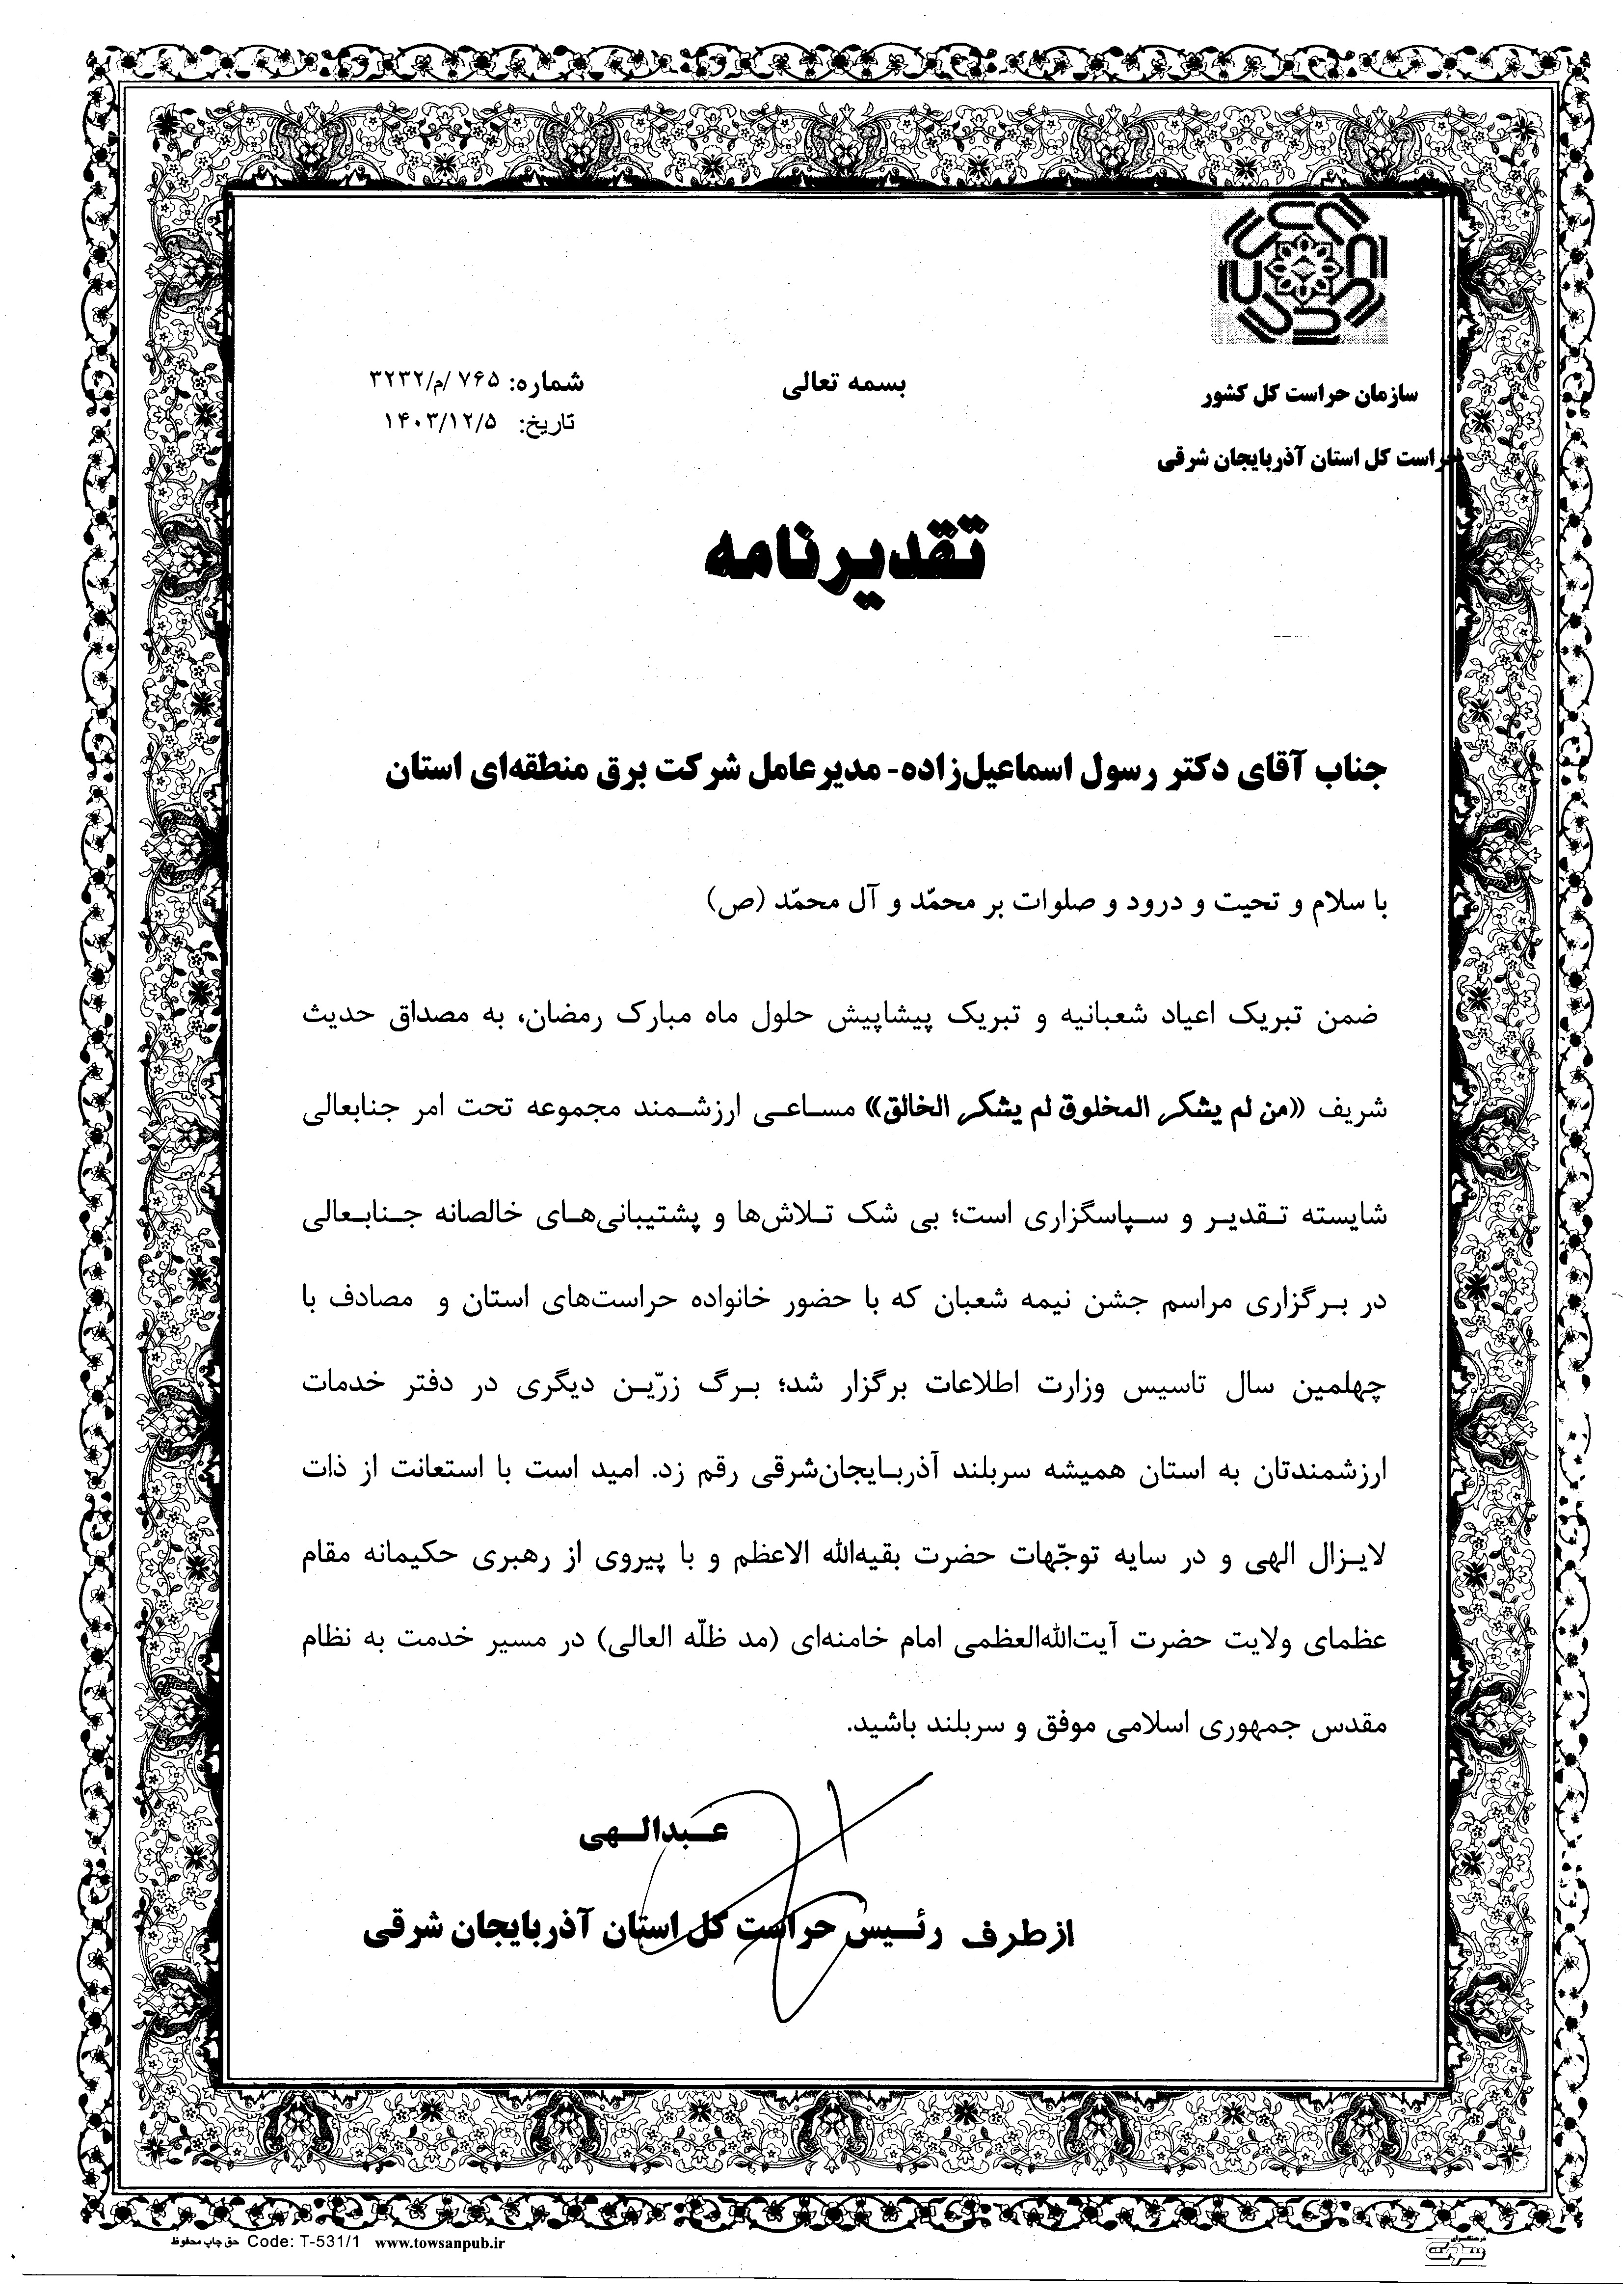 سازمان حراست کل کشور
حراست کل استان آذربایجان شرقی
بسمه تعالی
شماره: ۷۶۵ /م/۳۲۳۲
تاریخ: ۱۴۰۳/۱۲/۵
تقدیرنامه
جناب آقای دکتر رسول اسماعیل‌زاده- مدیرعامل شرکت برق منطقه‌ای استان
با سلام و تحیت و درود و صلوات بر محمّد و آل محمّد (ص)
ضمن تبریک اعیاد شعبانیه و تبریک پیشاپیش حلول ماه مبارک رمضان، به مصداق حدیث
شریف «من لم یشکر المخلوق لم یشکر الخالق» مساعی ارزشمند مجموعه تحت امر جنابعالی
شایسته تقدیر و سپاسگزاری است؛ بی شک تلاش‌ها و پشتیبانی‌های خالصانه جنابعالی
در برگزاری مراسم جشن نیمه شعبان که با حضور خانواده حراست‌های استان و مصادف با
چهلمین سال تاسیس وزارت اطلاعات برگزار شد؛ برگ زرّین دیگری در دفتر خدمات
ارزشمندتان به استان همیشه سربلند آذربایجان‌شرقی رقم زد. امید است با استعانت از ذات
لایزال الهی و در سایه توجّهات حضرت بقیه‌الله الاعظم و با پیروی از رهبری حکیمانه مقام
عظمای ولایت حضرت آیت‌الله‌العظمی امام خامنه‌ای (مد ظلّه العالی) در مسیر خدمت به نظام
مقدس جمهوری اسلامی موفق و سربلند باشید.
عبدالهی
ازطرف رئیس حراست کل استان آذربایجان شرقی
حق چاپ محفوظ Code: T-531/1 www.towsanpub.ir